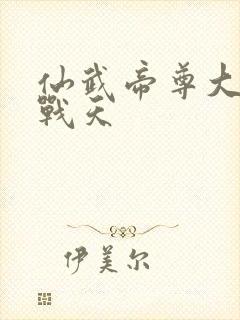 仙武帝尊大
戰天
伊美尔